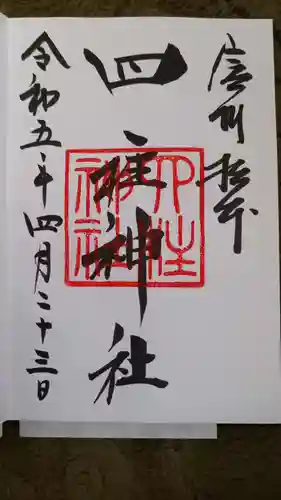 信州 松本
四柱神社
四柱
神社
令和五年四月二十三日